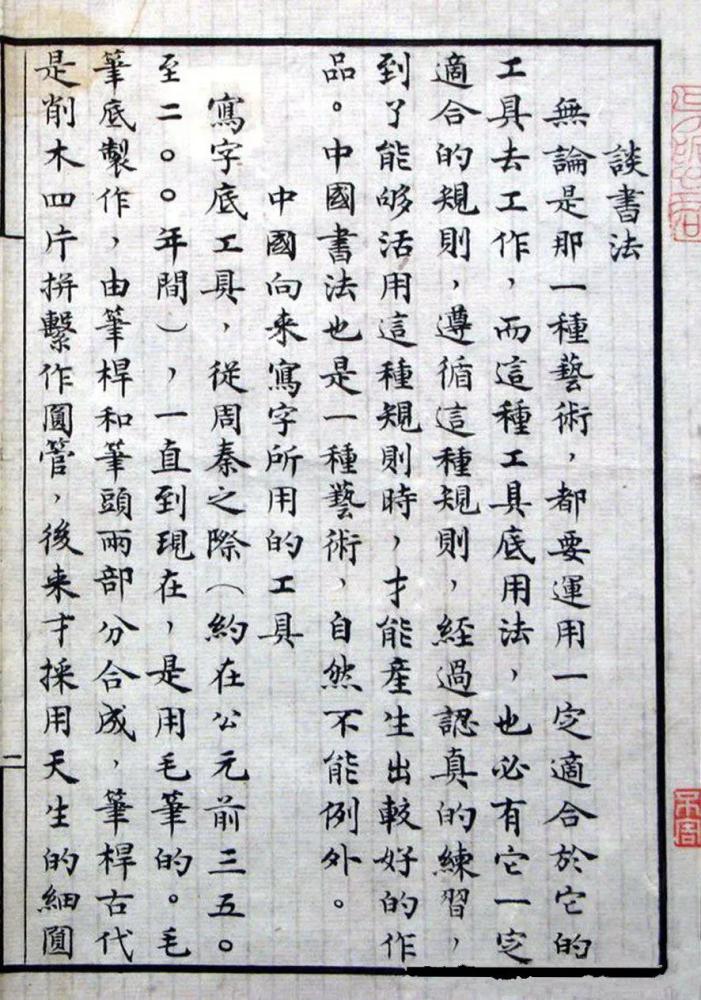 談書法
無論是那一種藝術，都要運用一定適合於它的
工具去工作，而這種工具底用法，也必有它一定
適合的規則，遵循這種規則，經過認真的練習，
到了能够活用這種規則時，才能產生出較好的作
品。中國書法也是一種藝術，自然不能例外。
中國向來寫字所用的工具
寫字底工具，從周秦之際（約在公元前三五〇
至二〇〇年間），一直到現在，是用毛筆的。毛
筆底製作，由筆桿和筆頭兩部分合成，筆桿古代
是削木四片拼繫作圓管，後来才採用天生的細圓
一